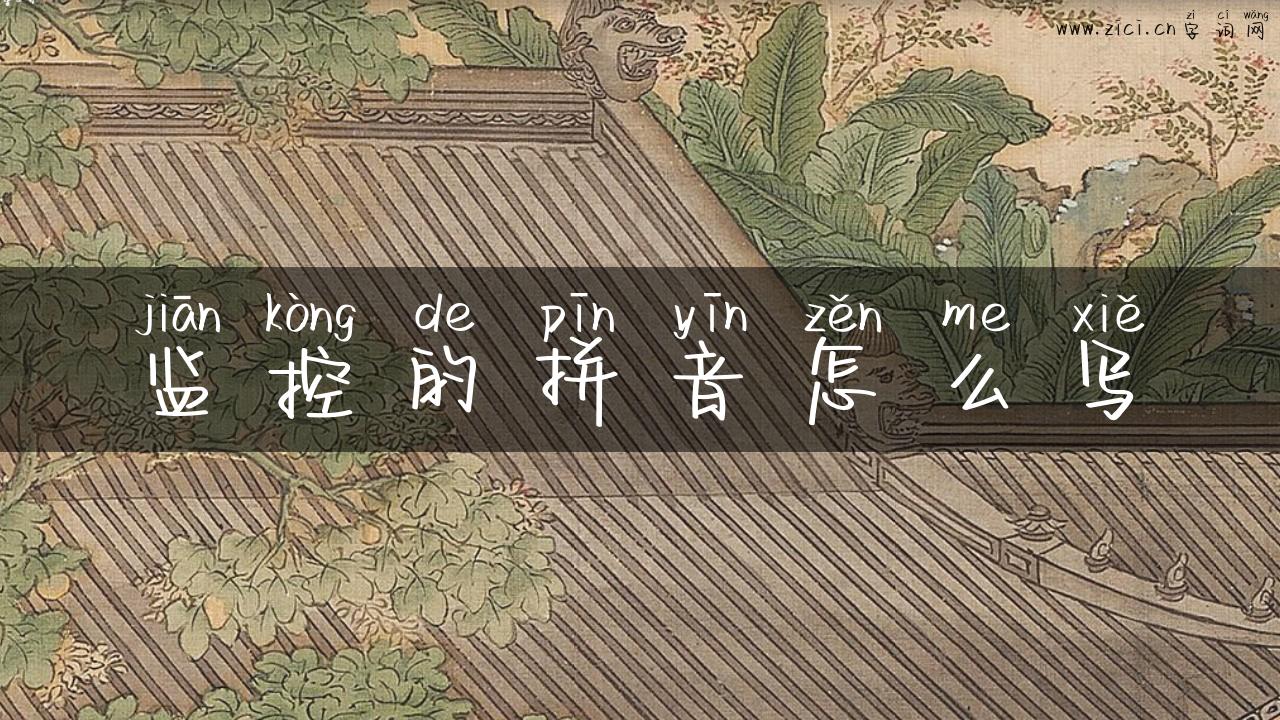 zì cí wǎng
www.zici.cn 字词网
jiān kòng de pīn yīn zěn me xiě
监控的拼音怎么写